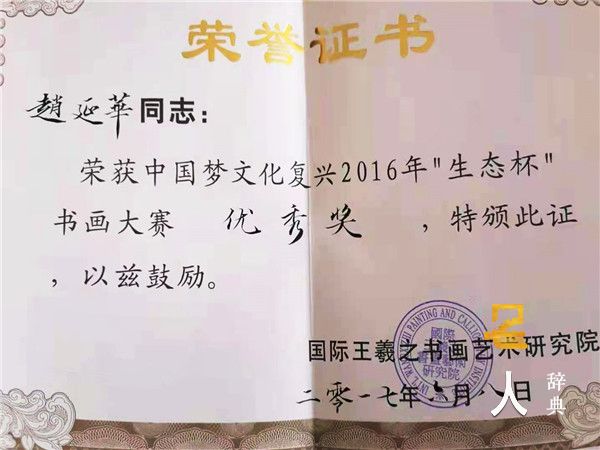 荣誉证书
趙延華同志：
荣获中国梦文化复兴2016年"生态杯"
书画大赛 优秀奖 ，特颁此证
，以兹鼓励。
国际王羲之书画艺术研究院
二零一七年六月八日
人
辞典